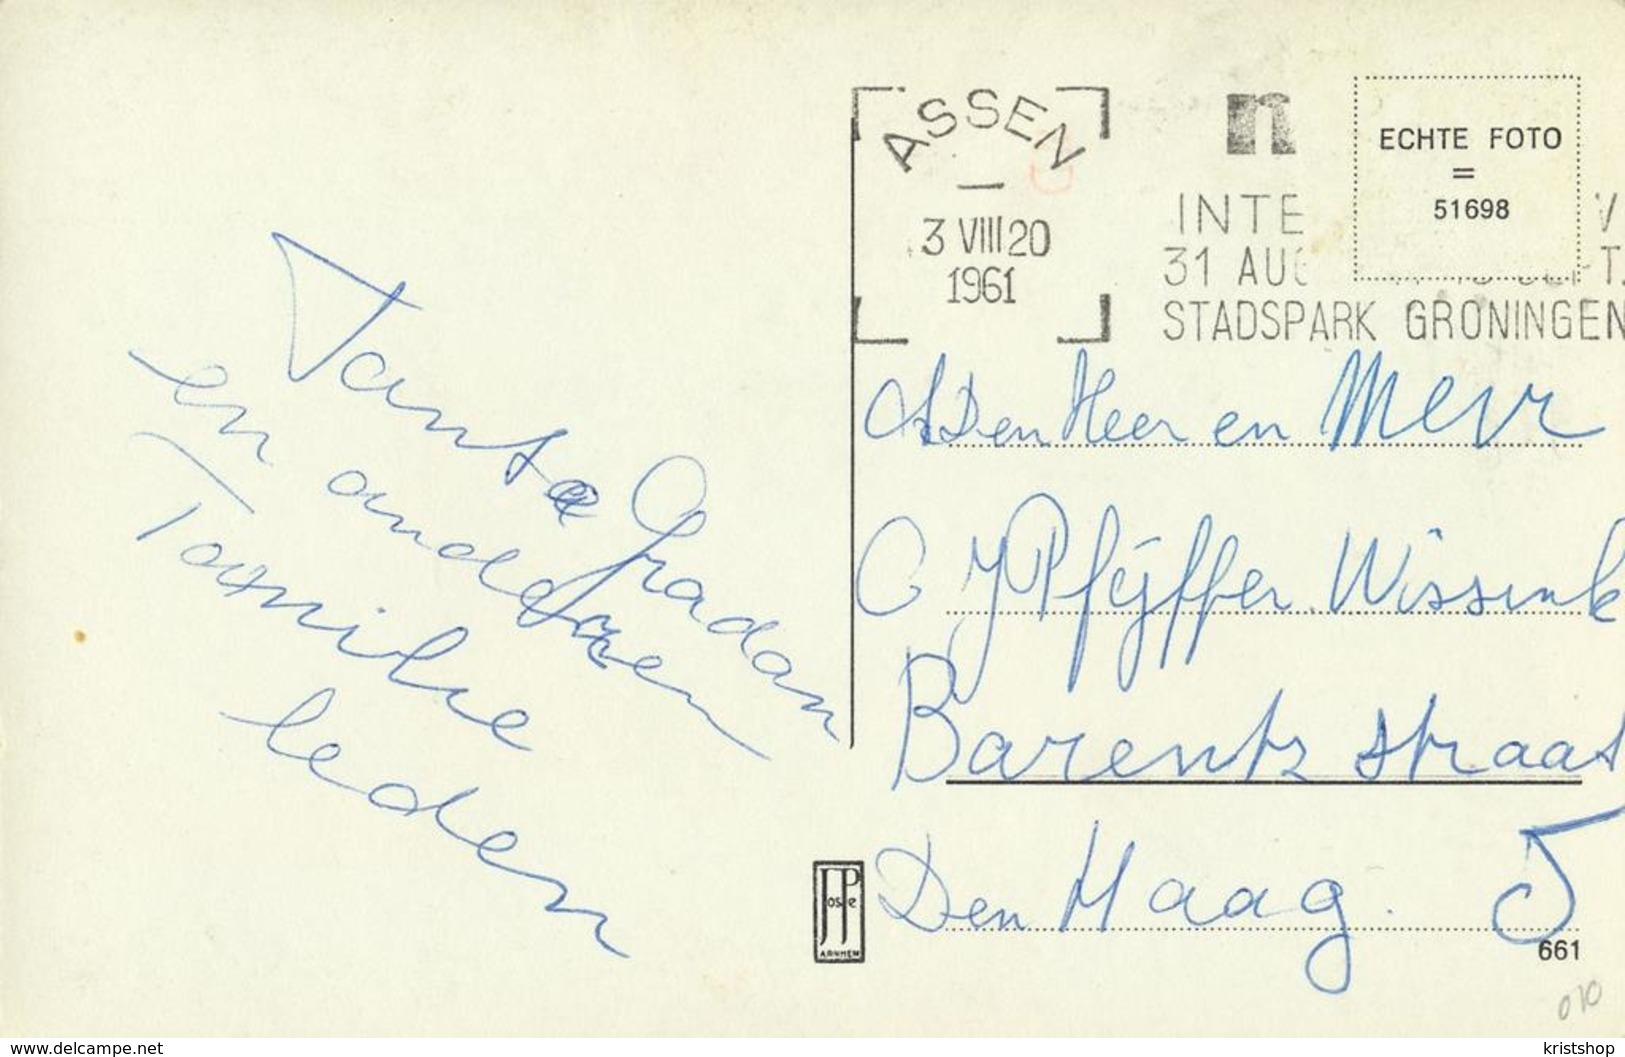 ASSEN
3 VIII 20
1961
n
INTE V
31 AUG T.
STADSPARK GRONINGEN
ECHTE FOTO
=
51698
Tante Gradan
en anderen
Familie
leden
Den Heer en Mevr
C J Pfijffer Wissink
Barentz straat
Den Haag. 5
JosPe
ARNHEM
661
010
www.delcampe.net
kristshop